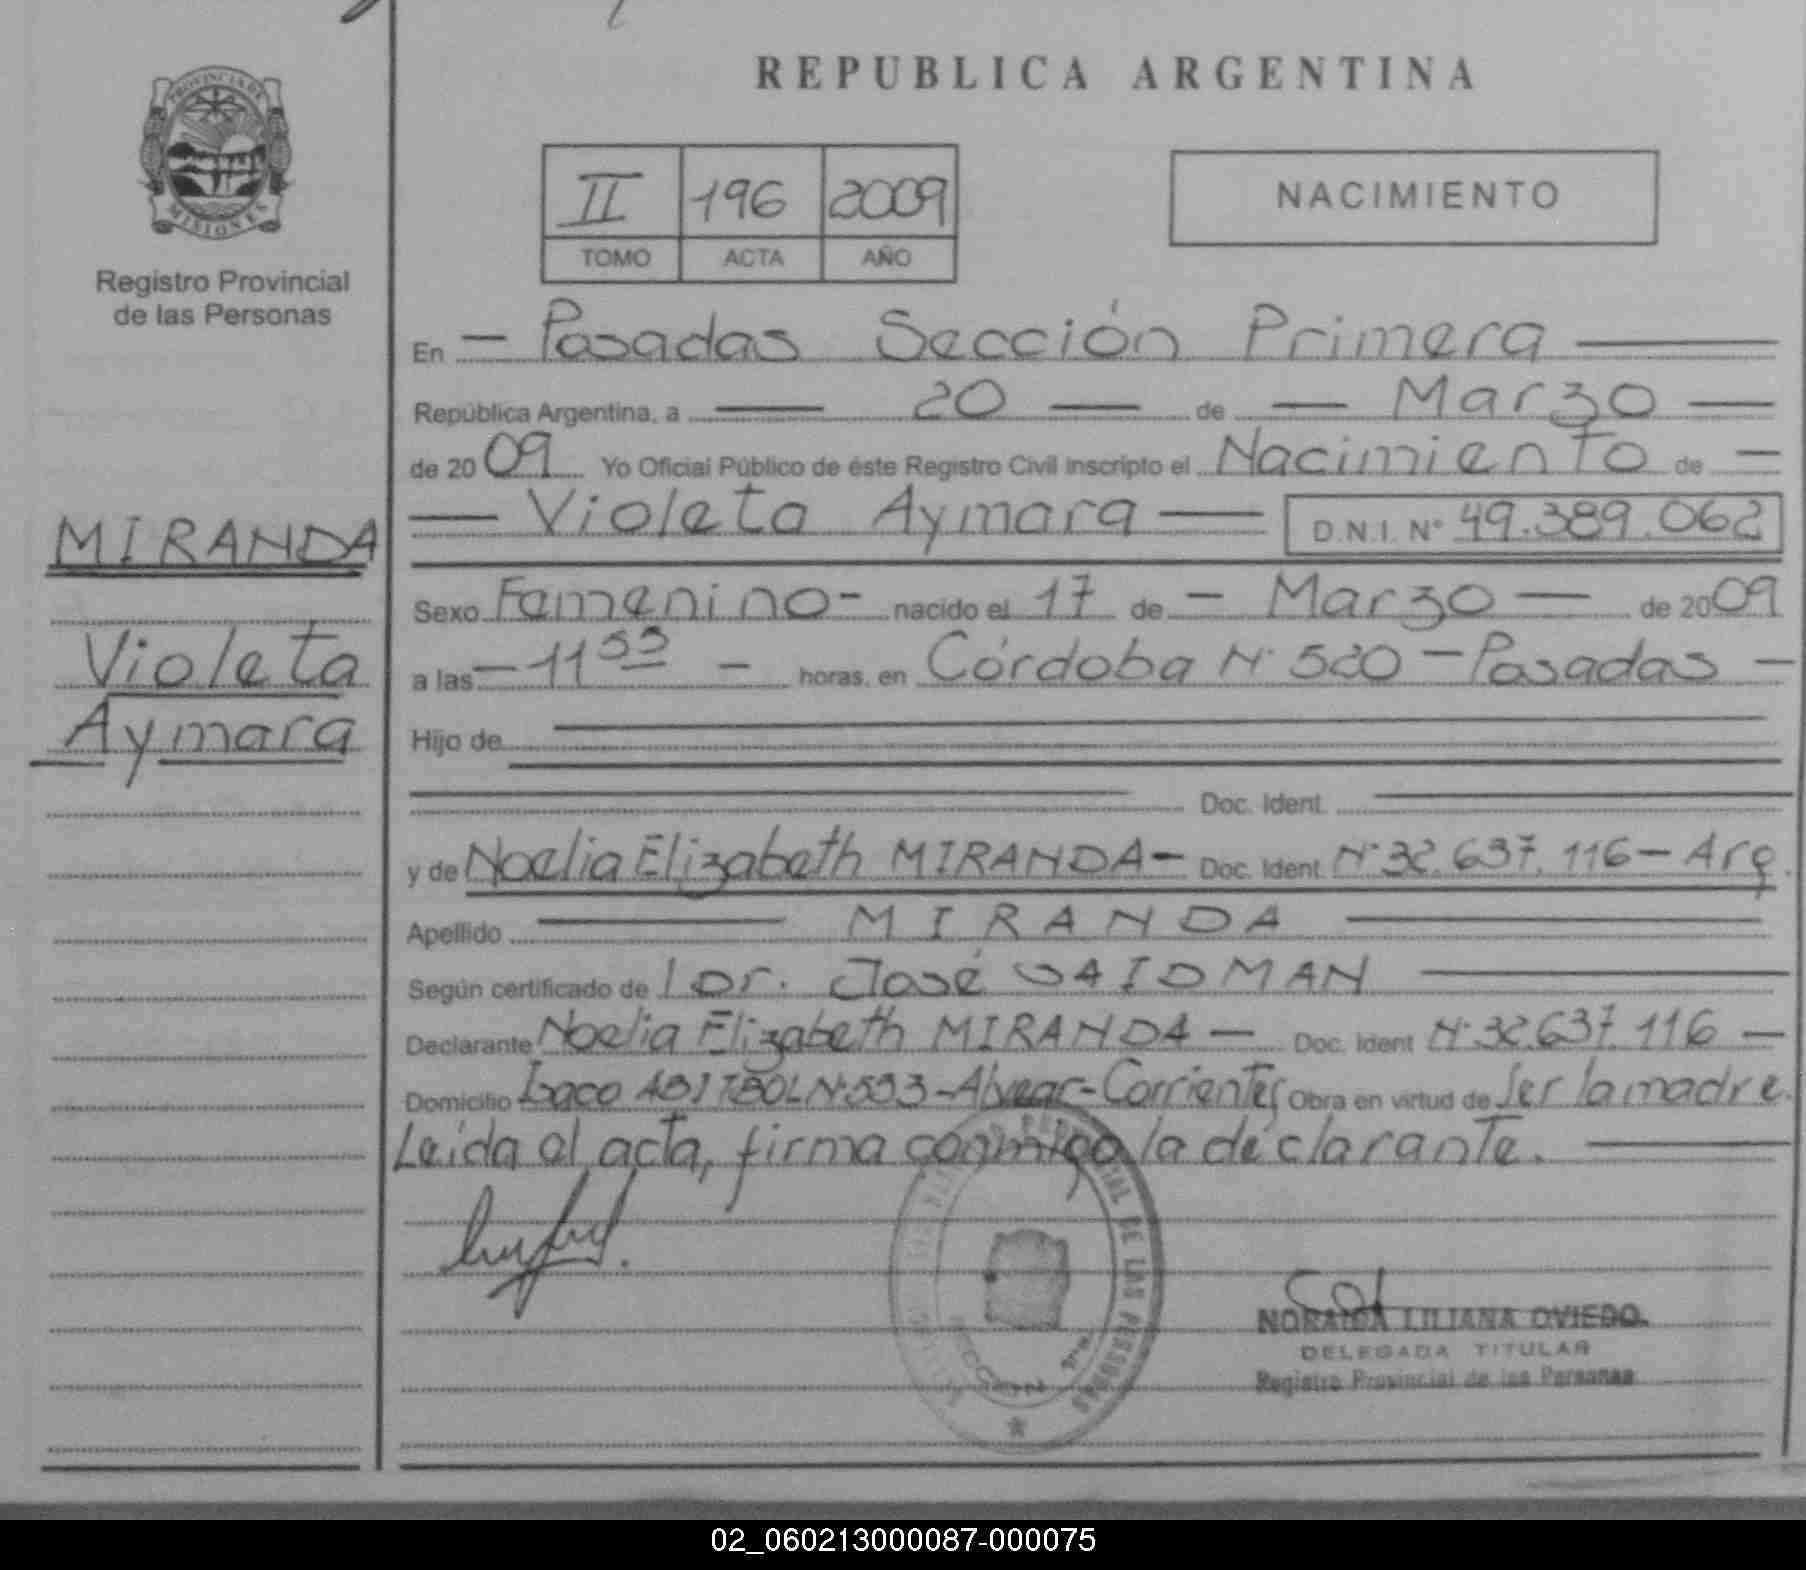 PROVINCIA DE
MISIONES
Registro Provincial
de las Personas
MIRANDA
Violeta
Aymara
REPUBLICA ARGENTINA
II 196 2009
TOMO ACTA AÑO
NACIMIENTO
En Posadas Sección Primera
República Argentina, a 20 de Marzo
de 2009 Yo Oficial Público de éste Registro Civil inscripto el Nacimiento de
Violeta Aymara D.N.I. Nº 49.389.062
Sexo Femenino - nacido el 17 de - Marzo - de 2009
a las - 11 55 - horas, en Córdoba Nº 520 - Posadas -
Hijo de
Doc. Ident.
y de Noelia Elizabeth MIRANDA - Doc. Ident. Nº 32.637.116 - Arg.
Apellido MIRANDA
Según certificado de Dr. José SAIDMAN
Declarante Noelia Elizabeth MIRANDA - Doc. Ident Nº 32.637.116 -
Domicilio Isaco Nº 593 - Alvear - Corrientes Obra en virtud de Ser la madre.
Leída el acta, firma conmigo la declarante.
DE LAS PERSONAS
NORAIDA LILIANA OVIEDO
DELEGADA TITULAR
Registro Provincial de las Personas
02_060213000087-000075